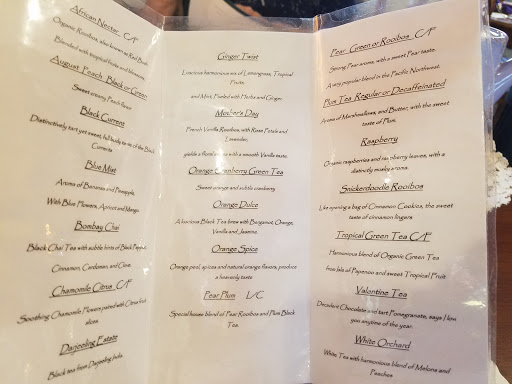 African Nectar C/F
Organic Rooibos, also known as Red Bush
Blended with tropical fruits and blossoms
August Peach Black or Green
Sweet creamy Peach flavor
Black Currant
Distinctively tart yet sweet, full body taste of the Black
Currants
Blue Mist
Aroma of Bananas and Pineapple,
With Blue Flowers, Apricot and Mango
Bombay Chai
Black Chai Tea with subtle hints of Black Pepper,
Cinnamon, Cardamon, and Cloves
Chamomile Citrus C/F
Soothing Chamomile Flowers paired with Citrus fruit
slices
Darjeeling Estate
Black tea from Darjeeling India
Ginger Twist
Luscious harmonious mix of Lemongrass, Tropical
Fruits
and Mint, Fused with Herbs and Ginger
Mother's Day
French Vanilla Rooibos, with Rose Petals and
Lavender,
yields a floral aroma with a smooth Vanilla taste.
Orange Cranberry Green Tea
Sweet orange and subtle cranberry
Orange Dulce
A luscious Black Tea brew with Bergamot, Orange,
Vanilla and Jasmine.
Orange Spice
Orange peel, spices and natural orange flavors, produce
a heavenly taste
Pear Plum L/C
Special house blend of Pear Rooibos and Plum Black
Tea.
Pear Green or Rooibos C/F
Strong Pear aroma, with a sweet Pear taste.
A very popular blend in the Pacific Northwest.
Plum Tea Regular or Decaffeinated
Aroma of Marshmallows, and Butter, with the sweet
taste of Plum.
Raspberry
Organic raspberries and raspberry leaves, with a
distinctly musky aroma.
Snickerdoodle Rooibos
Like opening a bag of Cinnamon Cookies, the sweet
taste of cinnamon lingers
Tropical Green Tea C/F
Harmonious blend of Organic Green Tea
from Isle of Papenoo and sweet Tropical Fruit
Valentine Tea
Decadent Chocolate and tart Pomegranate, says I love
you anytime of the year.
White Orchard
White Tea with harmonious blend of Melons and
Peaches